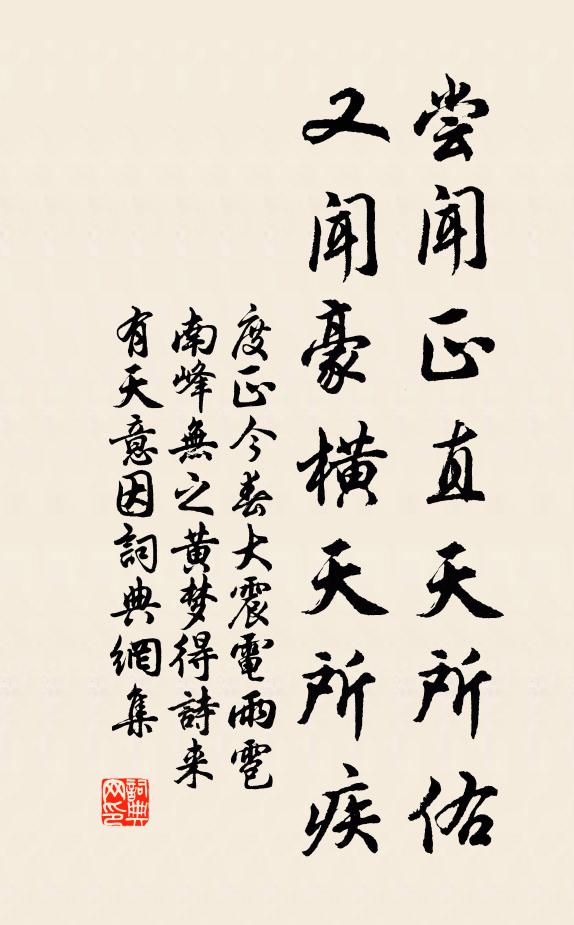 尝闻正直天所佑
又闻豪横天所疾
度正今春大震電雨雹
南峰無之黄梦得詩来
有天意因詞典網集
詞典网印